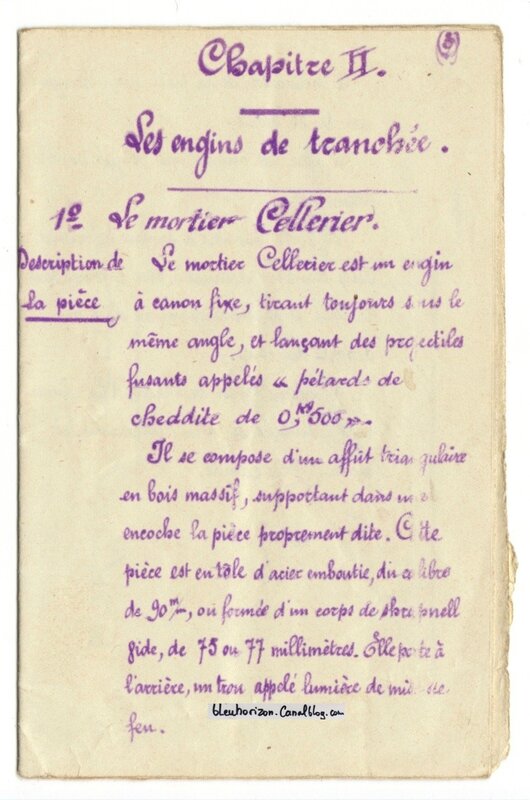 (3)
Chapitre II.
Les engins de tranchée.
1º Le mortier Cellerier.
Description de
la pièce
Le mortier Cellerier est un engin
à canon fixe, tirant toujours sous le
même angle, et lançant des projectiles
fusants appelés « pétards de
cheddite de 0,Kg500 ».
Il se compose d'un affût triangulaire
en bois massif, supportant dans une
encoche la pièce proprement dite. Cette
pièce est en tôle d'acier emboutie, du calibre
de 90m/m, ou formée d'un corps de shrapnell
vide, de 75 ou 77 millimètres. Elle porte à
l'arrière, un trou appelé lumière de mise de
feu.
bleuhorizon.Canalblog.com